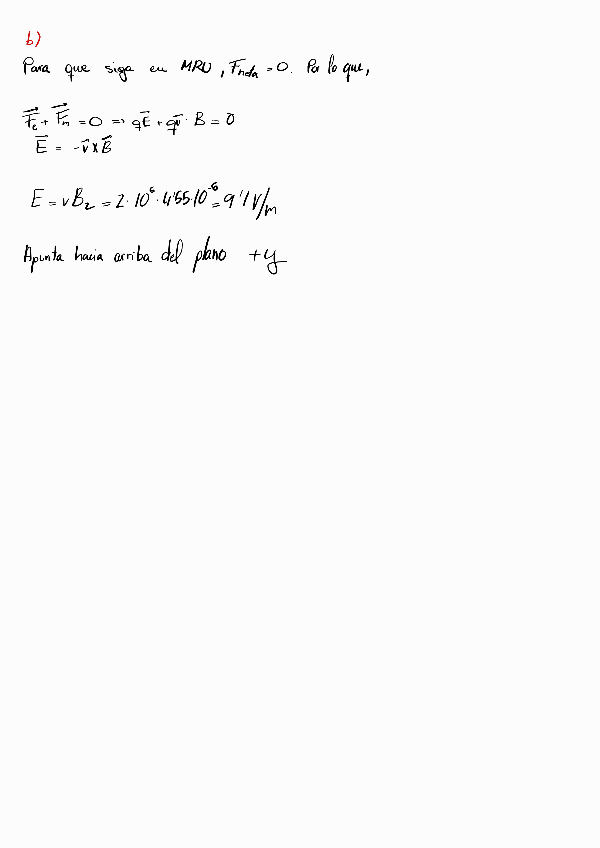 b)
Para que siga en MRU, Fneta = 0. Por lo que,
F⃗e + F⃗m = 0 => qE⃗ + qv⃗ · B = 0
E⃗ = -v⃗ x B⃗
E = vB2 = 2·10⁶·4'55·10⁻⁶ = 9'1 V/m
Apunta hacia arriba del plano +y